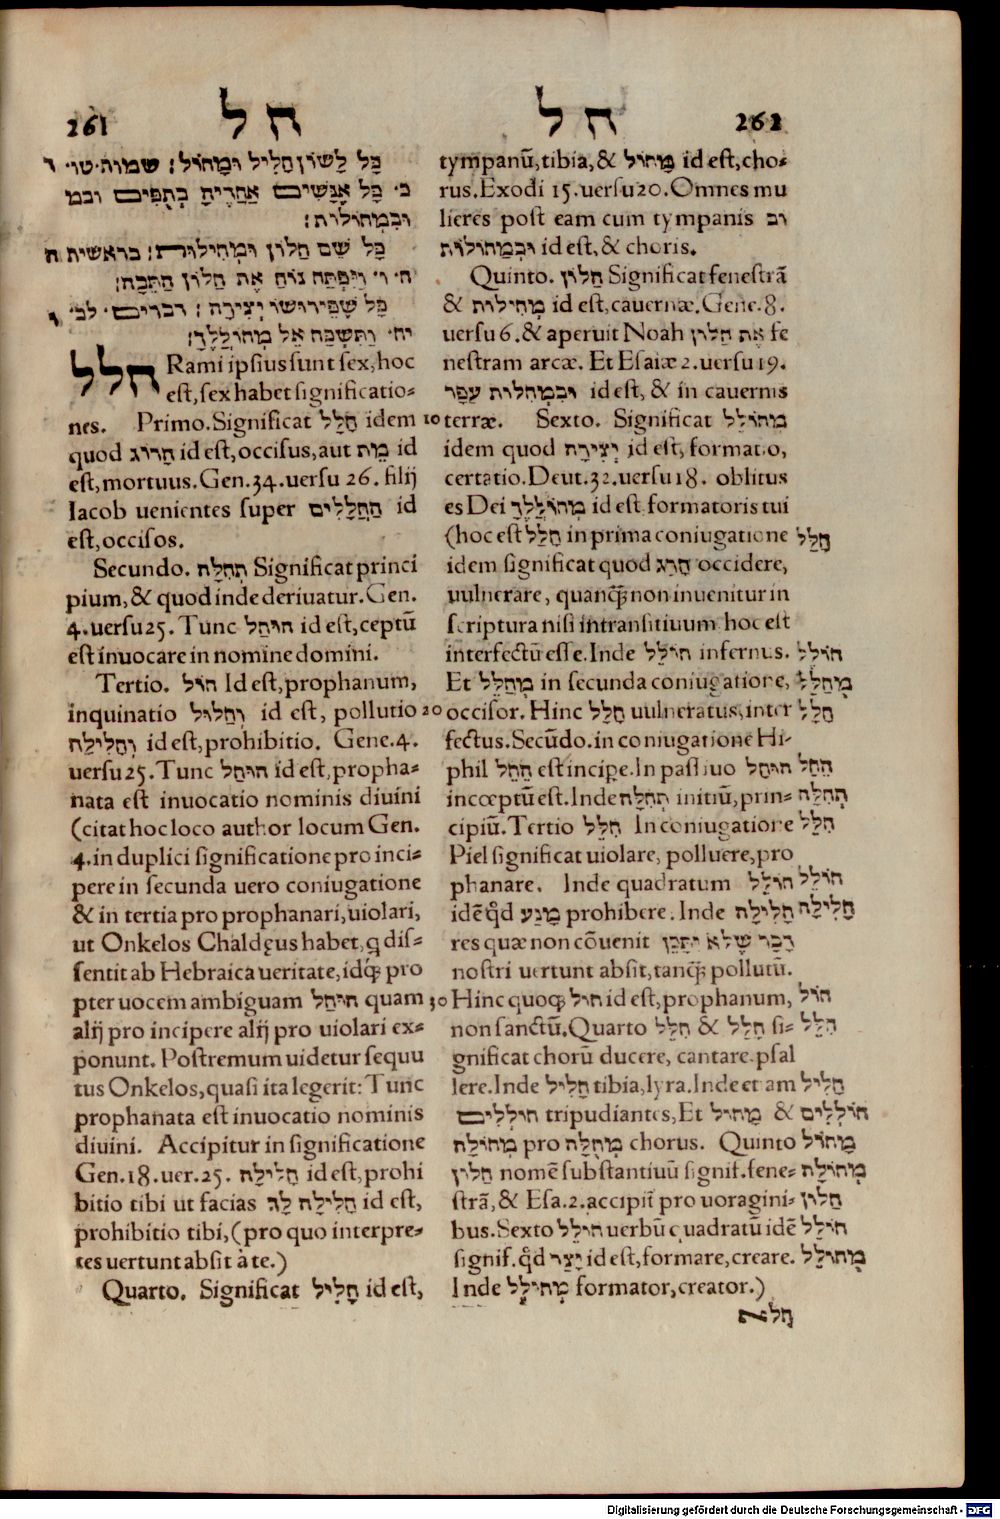 261
חל
חל
262
כָּל לְשׁוֹן חָלִיל וּמָחוֹל: שמות·טו· ו
כ· כָּל אֲנָשִׁים אַחֲרֶיהָ בְתֻפִּים ובמ
וּבִמְחוֹלוֹת:
כָּל שֵׁם חַלּוֹן וּמְחִילוֹת: בראשית ח
ח· ו· וַיִּפְתַּח נוֹחַ אֶת חַלּוֹן הַתֵּבָה:
כָּל שֶׁפֵּירוּשׁוֹ יְצִירָה: דברים· לב· ו
יח· וַתִּשְׁכַּח אֵל מְחוֹלְלֶךָ:
חלל Rami ipsius sunt sex, hoc
est, sex habet significatio-
nes. Primo. Significat חָלָל idem
quod הָרוּג id est, occisus, aut מֵת id
est, mortuus. Gen. 34. uersu 26. filij
Iacob uenientes super הַחֲלָלִים id
est, occisos.
Secundo. תְּחִלָּת Significat princi
pium, & quod inde deriuatur. Gen.
4. uersu 25. Tunc הוּחַל id est, ceptū
est inuocare in nomine domini.
Tertio. חוֹל Id est, prophanum,
inquinatio וְחִלּוּל id est, pollutio
וְחָלִילָה id est, prohibitio. Gene. 4.
uersu 25. Tunc הוּחַל id est, propha-
nata est inuocatio nominis diuini
(citat hoc loco author locum Gen.
4. in duplici significatione pro inci-
pere in secunda uero coniugatione
& in tertia pro prophanari, uiolari,
ut Onkelos Chaldęus habet, q dis-
sentit ab Hebraica ueritate, idq́; pro
pter uocem ambiguam הוּחַל quam
alij pro incipere alij pro uiolari ex-
ponunt. Postremum uidetur sequu
tus Onkelos, quasi ita legerit: Tunc
prophanata est inuocatio nominis
diuini. Accipitur in significatione
Gen. 18. uer. 25. חָלִילָה id est, prohi
bitio tibi ut facias חָלִילָה לְךָ id est,
prohibitio tibi, (pro quo interpre-
tes uertunt absit à te.)
Quarto. Significat חָלִיל id est,
tympanū, tibia, & מָחוֹל id est, cho-
rus. Exodi 15. uersu 20. Omnes mu
lieres post eam cum tympanis וב
וּבִמְחוֹלוֹת id est, & choris.
Quinto. חַלּוֹן Significat fenestrā
& מְחִילוֹת id est, cauernæ. Gene. 8.
uersu 6. & aperuit Noah אֶת חַלּוֹן fe
nestram arcæ. Et Esaiæ 2. uersu 19.
וּבִמְחִלּוֹת עָפָר id est, & in cauernis
10 terræ. Sexto. Significat מְחוֹלֵל
idem quod יְצִירָה id est, formatio,
certatio. Deut. 32. uersu 18. oblitus
es Dei מְחוֹלְלֶךָ id est formatoris tui
(hoc est חָלַל in prima coniugatione חָלַל
idem significat quod הָרַג occidere,
uulnerare, quanq̃; non inuenitur in
scriptura nisi intransitiuum hoc est
interfectū esse. Inde חוֹלֵל infernus. חוֹלֵל
Et מְחַלֵּל in secunda coniugatione, מְחַלֵּל
20 occisor. Hinc חָלָל uulneratus, inter חָלָל
fectus. Secūdo. in coniugatione Hi-
phil הָחֵל est incipe. In passiuo הוּחַל הֵחֵל
incœptū est. Inde תְּחִלָּה initiū, prin- תְּחִלָּה
cipiū. Tertio חִלֵּל In coniugatione חִלֵּל
Piel significat uiolare, polluere, pro
phanare. Inde quadratum חוֹלֵל חוֹלֵל
idē q̊d מָנַע prohibere. Inde חָלִילָה חָלִילָה
res quæ non cōuenit דָּבָר שֶׁלֹּא יִתָּכֵן
nostri uertunt absit, tanq̃; pollutū.
30 Hinc quoq; חוֹל id est, prophanum, חוֹל
non sanctū. Quarto חִלֵּל & חָלַל si- חִלֵּל
gnificat chorū ducere, cantare. psal
lere. Inde חָלִיל tibia, lyra. Inde etiam חָלִיל
חוֹלְלִים tripudiantes, Et מָחוֹל & חוֹלְלִים
מְחוֹלָה pro מְחֹלָה chorus. Quinto מָחוֹל
חַלּוֹן nomē substantiuū signif. fene- מְחוֹלָה
strā, & Esa. 2. accipit̃ pro uoragini- חַלּוֹן
bus. Sexto חוֹלֵל uerbū quadratū idē חוֹלֵל
signif. q̊d יָצַר id est, formare, creare. מְחוֹלֵל
Inde מְחוֹלֵל formator, creator.)
חלא
Digitalisierung gefördert durch die Deutsche Forschungsgemeinschaft - DFG